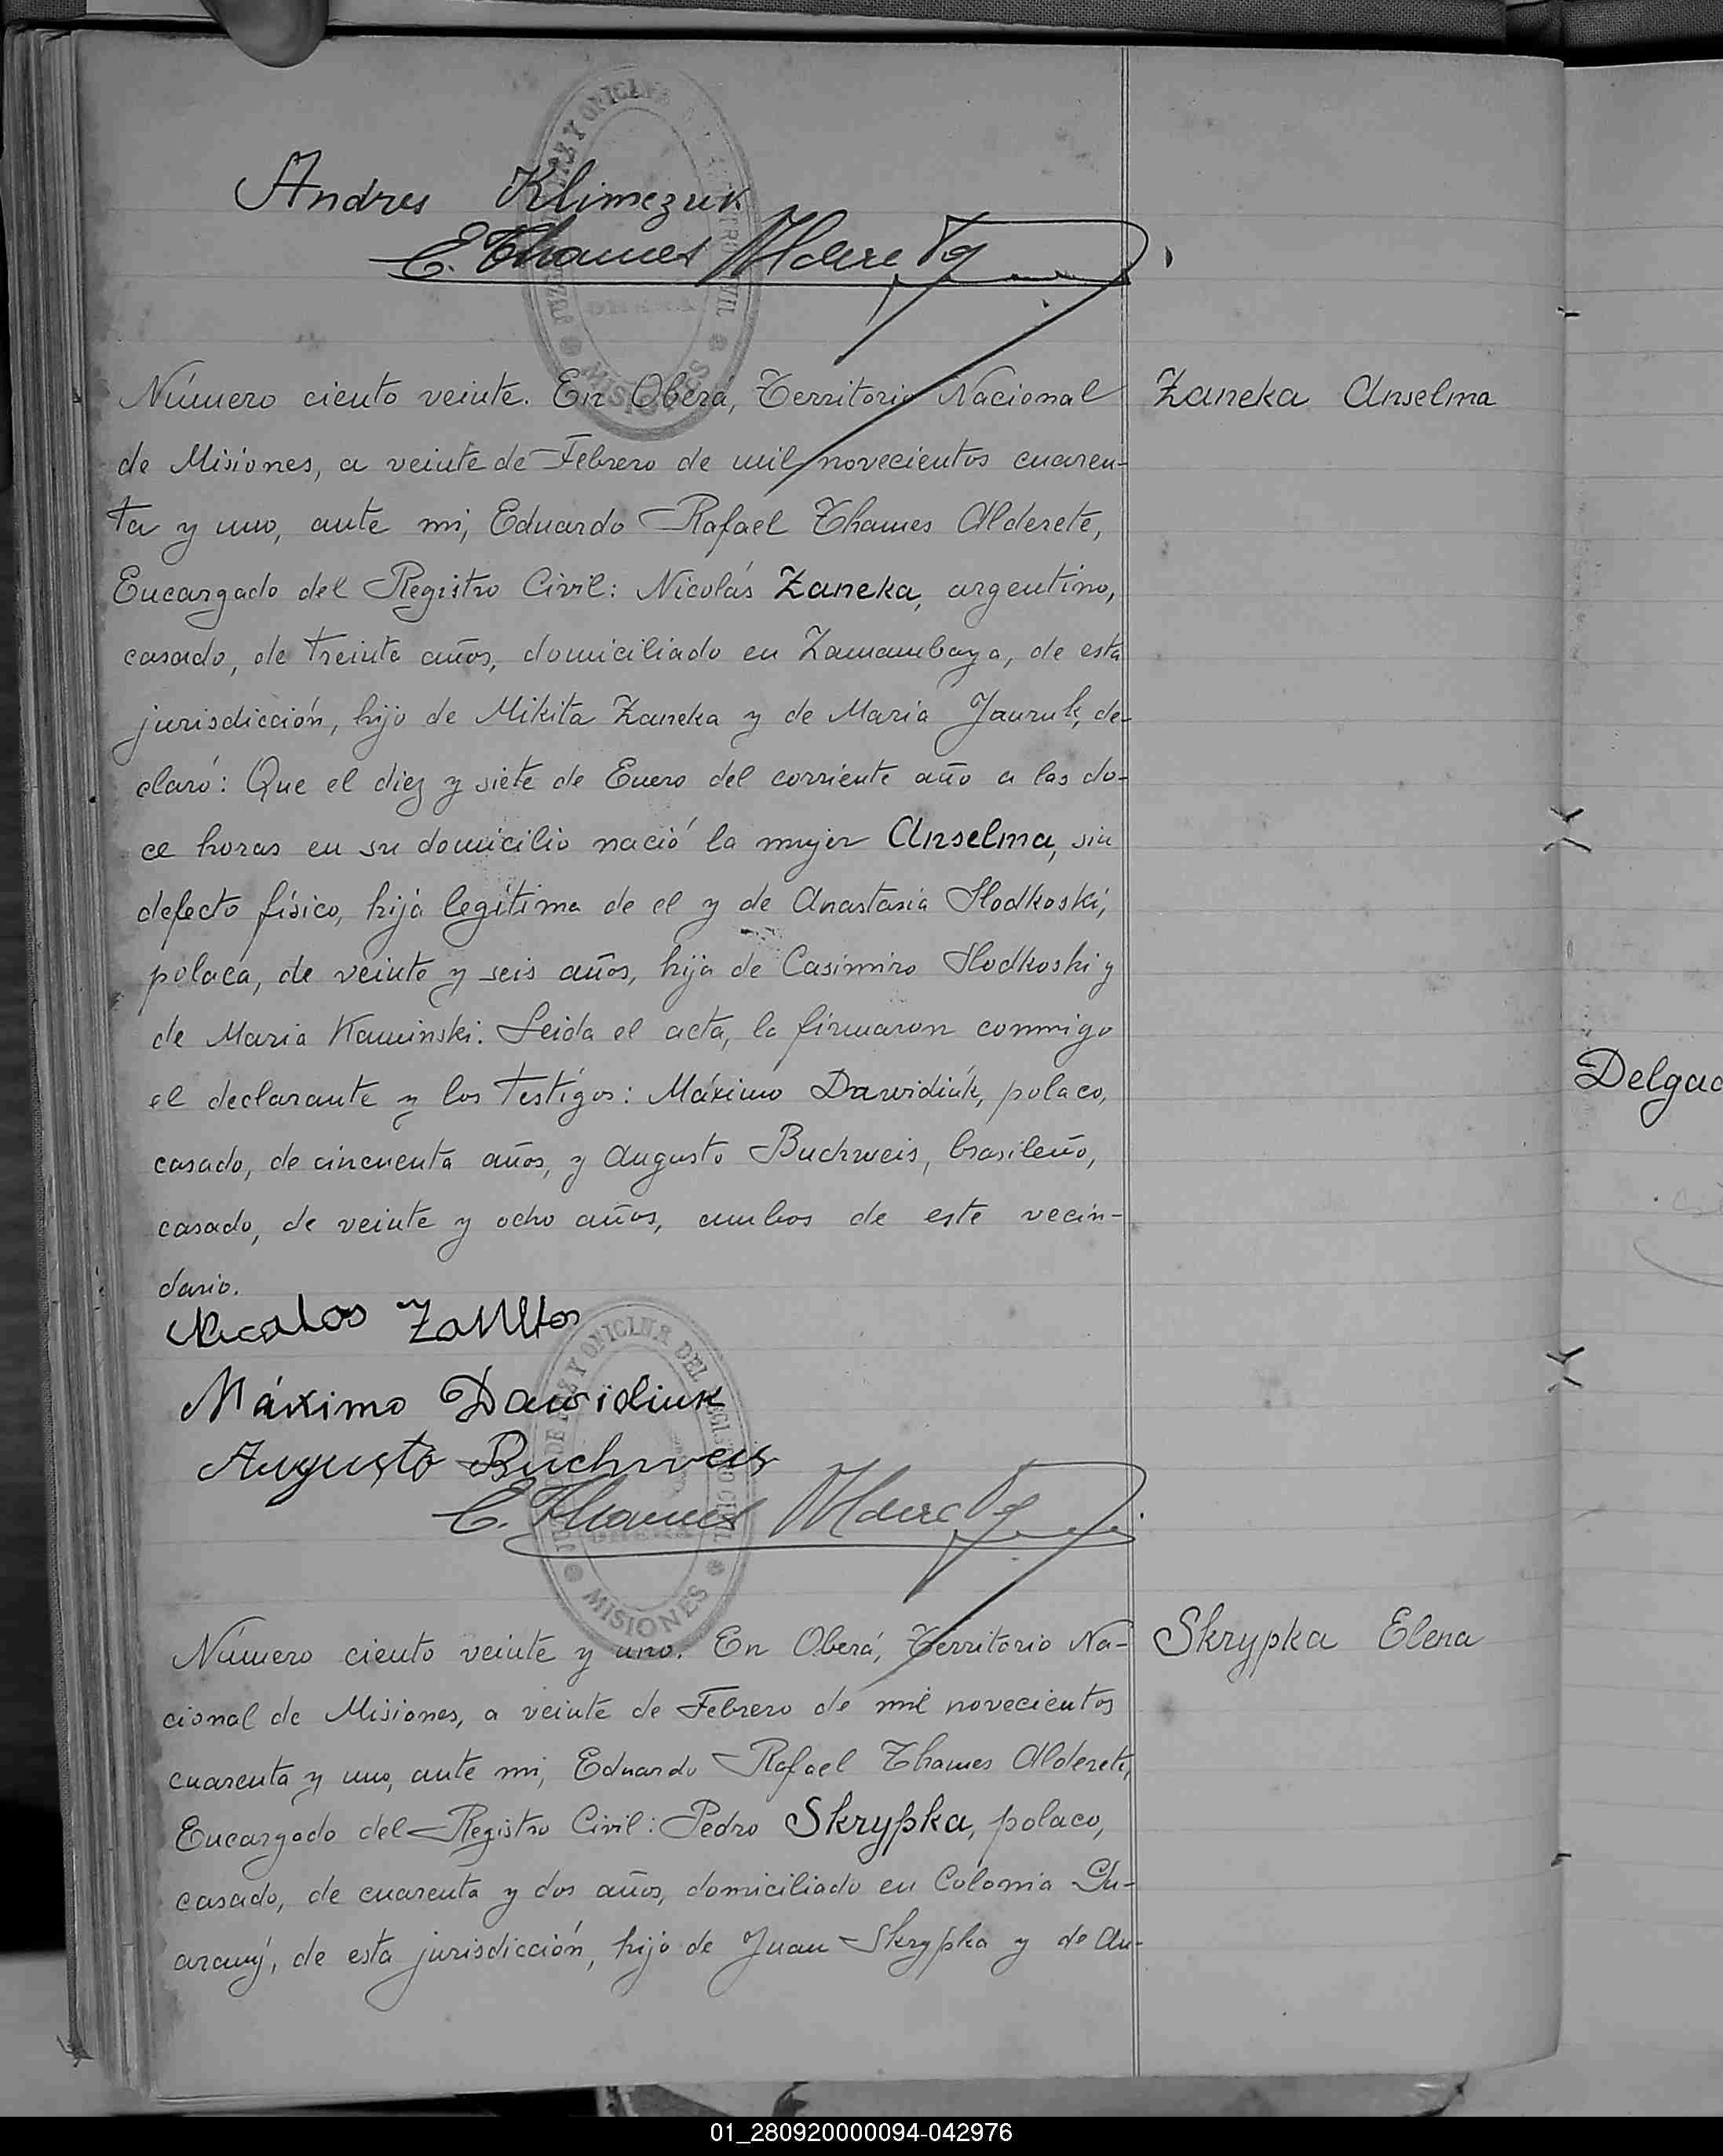 Andres Klimczuk
E. Thames Alderete
Número ciento veinte. En Oberá, Territorio Nacional
Zaneka Anselma
de Misiones, a veinte de Febrero de mil novecientos cuaren-
ta y uno, ante mi, Eduardo Rafael Thames Alderete,
Encargado del Registro Civil: Nicolás Zaneka, argentino,
casado, de treinta años, domiciliado en Zamambaya, de esta
jurisdicción, hijo de Mikita Zaneka y de María Jauruk, de-
claró: Que el diez y siete de Enero del corriente año a las do-
ce horas en su domicilio nació la mujer Anselma, sin
defecto físico, hija legítima de el y de Anastasia Slodkoski,
polaca, de veinte y seis años, hija de Casimiro Slodkoski y
de Maria Kaminski. Leida el acta, la firmaron conmigo
el declarante y los testigos: Máximo Dawidiuk, polaco,
casado, de cincuenta años, y Augusto Buchweis, brasileño,
casado, de veinte y ocho años, ambos de este vecin-
dario.
Máximo Dawidiuk
Augusto Buchweis
E. Thames Alderete
MISIONES
Número ciento veinte y uno. En Oberá, Territorio Na-
Skrypka Elena
cional de Misiones, a veinte de Febrero de mil novecientos
cuarenta y uno, ante mi, Eduardo Rafael Thames Alderete,
Encargado del Registro Civil: Pedro Skrypka, polaco,
casado, de cuarenta y dos años, domiciliado en Colonia Gu-
arany, de esta jurisdicción, hijo de Juan Skrypka y de An-
Delgad
01_280920000094-042976